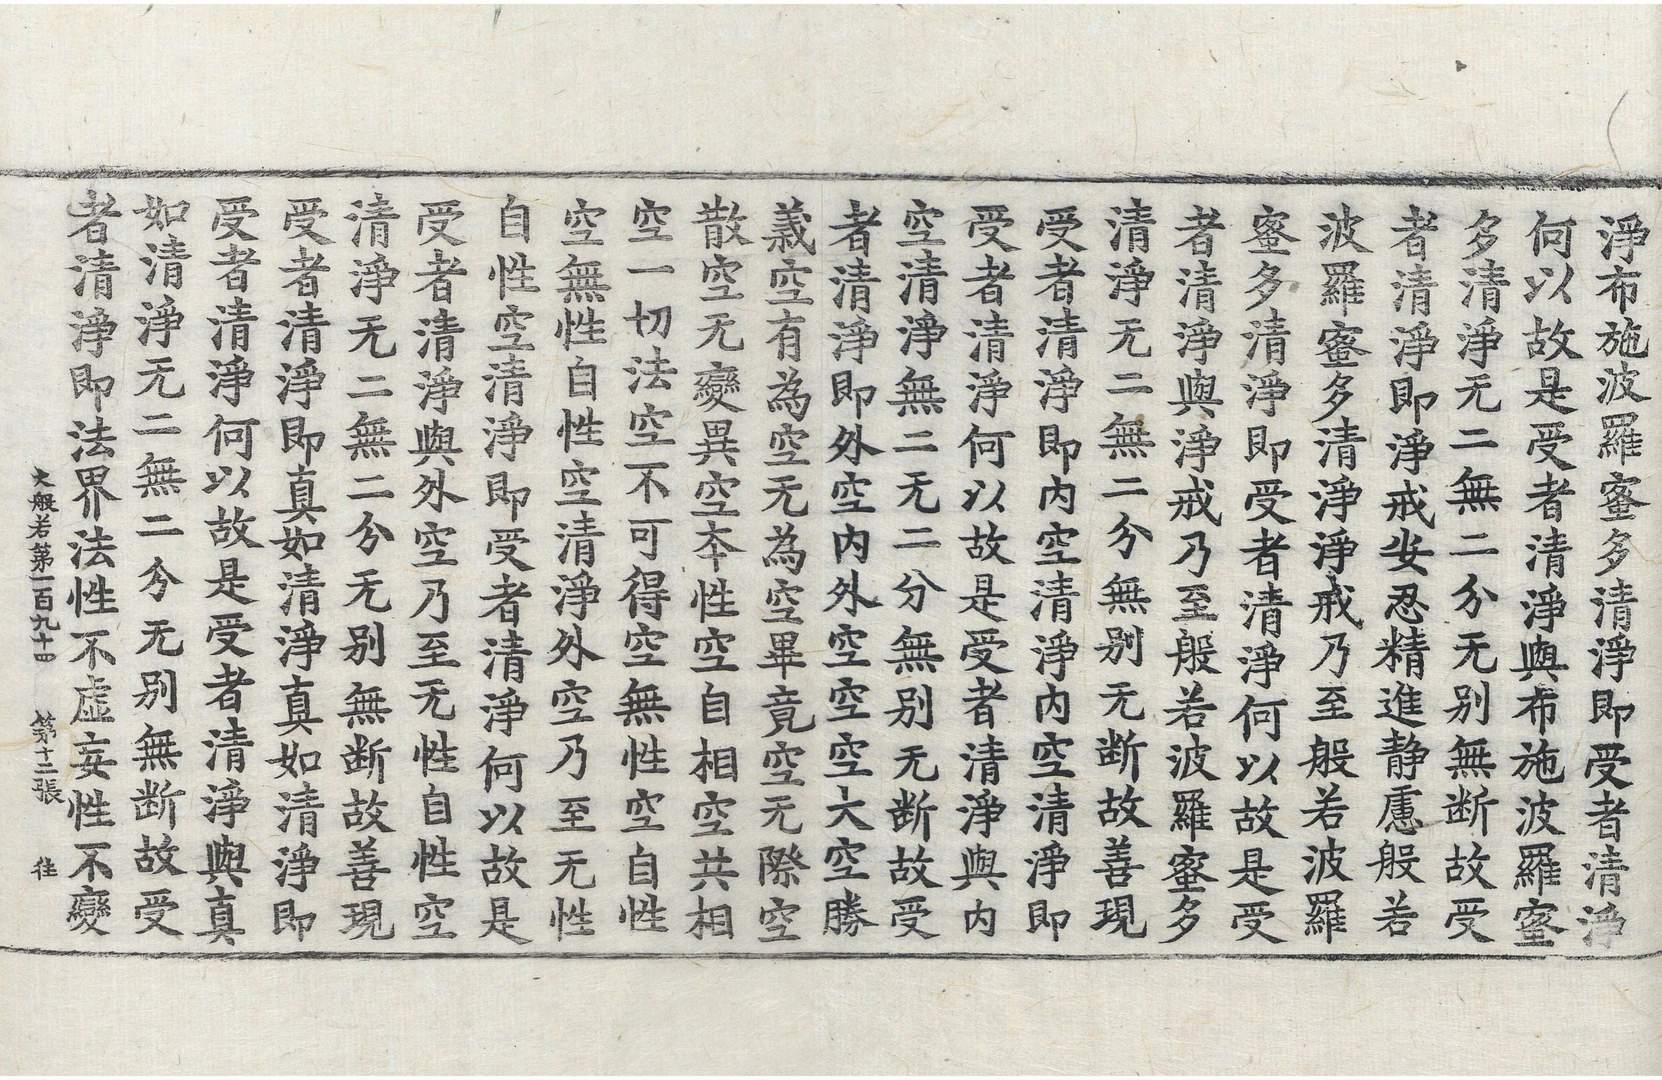 淨布施波羅蜜多清淨即受者清淨
何以故是受者清淨與布施波羅蜜
多清淨无二無二分无别無断故受
者清淨即淨戒安忍精進静慮般若
波羅蜜多清淨淨戒乃至般若波羅
蜜多清淨即受者清淨何以故是受
者清淨與淨戒乃至般若波羅蜜多
清淨无二無二分無别无断故善現
受者清淨即内空清淨内空清淨即
受者清淨何以故是受者清淨與内
空清淨無二无二分無别无断故受
者清淨即外空内外空空空大空勝
義空有為空无為空畢竟空无際空
散空无變異空夲性空自相空共相
空一切法空不可得空無性空自性
空無性自性空清淨外空乃至无性
自性空清淨即受者清淨何以故是
受者清淨與外空乃至无性自性空
清淨无二無二分无别無断故善現
受者清淨即真如清淨真如清淨即
受者清淨何以故是受者清淨與真
如清淨无二無二分无别無断故受
者清淨即法界法性不虛妄性不變
大般若第一百九十四 第十二張 往